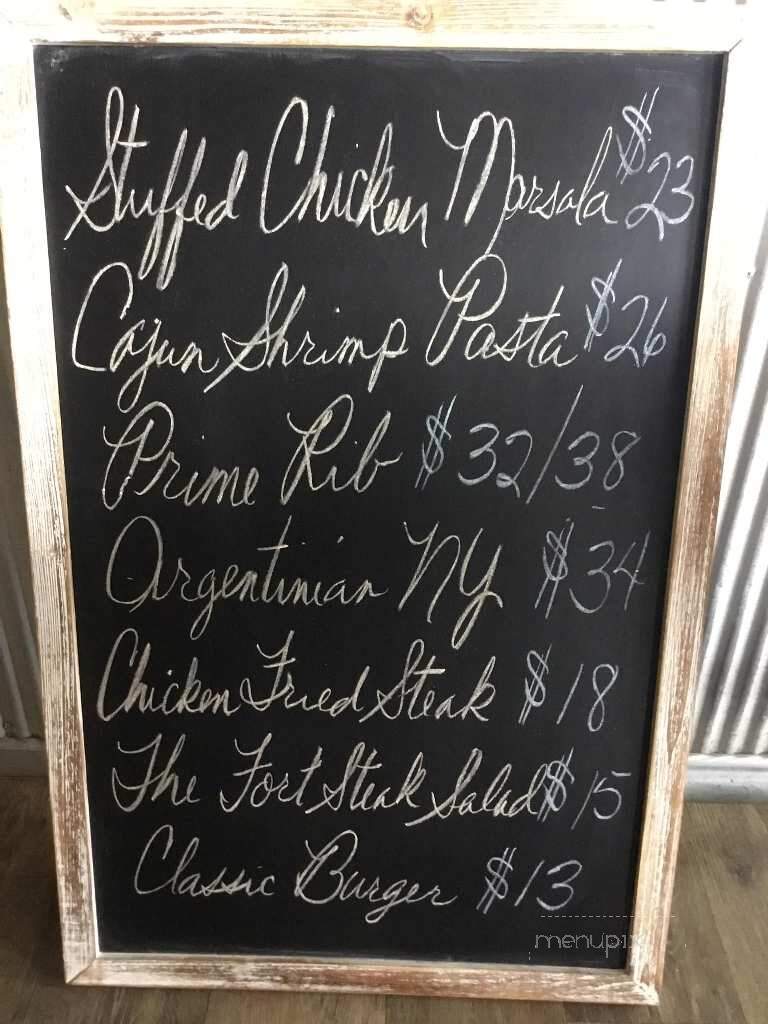 Stuffed Chicken Marsala $23
Cajun Shrimp Pasta $26
Prime Rib $32/38
Argentinian NY $34
Chicken Fried Steak $18
The Fort Steak Salad $15
Classic Burger $13
menupix